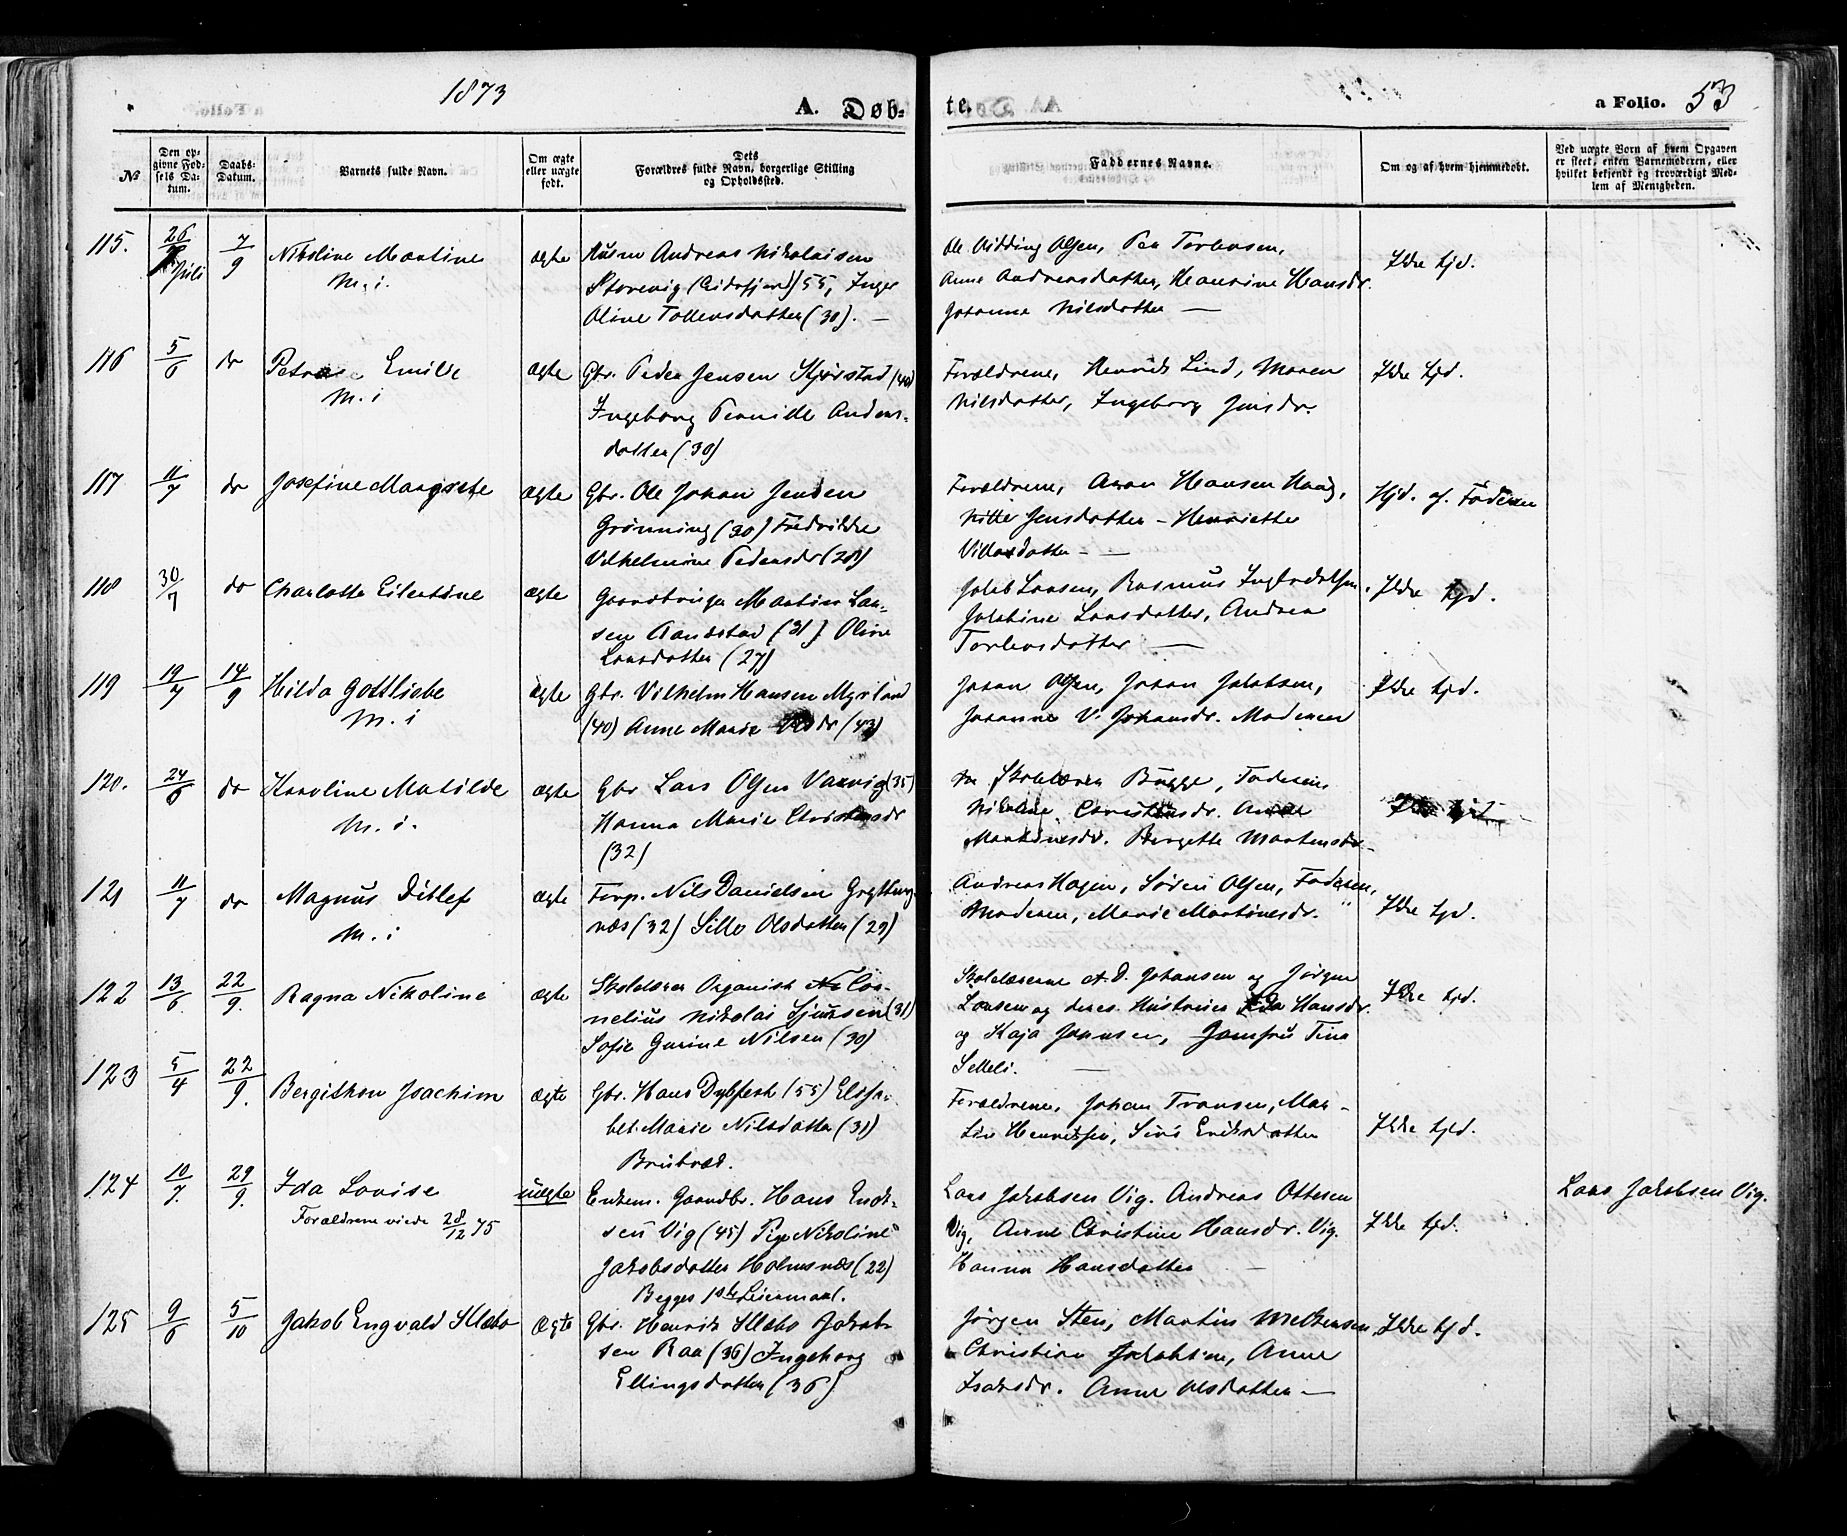 1873
A. Døb-
te.
a Folio. 53
No
Den op-
givne Fød-
sels Da-
tum.
Daabs-
Datum.
Barnets fulde Navn.
Om ægte
eller uægte
født.
Dets
Forældres fulde Navn, borgerlige Stilling
og Opholdssted.
Faddernes Navne.
Om og af hvem hjemmedøbt.
Ved uægte Børn af hvem Opgaven
er skeet, enten Barnemoderen, eller
hvilket bekjendt og troværdigt Med-
lem af Menigheden.
115. 26/ Juli 7/9 Nikoline Martine
M. i.
ægte
Andreas Nikolaisen
Storevig (Eidsfjord) 55, Inger
Oline Tollevsdatter (30). —
Ole Hidding Olsen, Peu Torlevsen,
Anne Andreasdatter, Hansine Hansdr.
Johanne Nilsdatter —
Ikke hjd.
116 5/6 do Petra Emilie
M. i
ægte
Gbr. Peder Jensen Skjørstad (40)
Ingeborg Pernille Anders-
datter (30)
Forældrene, Henrik Lind, Maren
Nilsdatter, Ingeborg Jensdr.
Ikke hjd.
117 11/7 do Josefine Margrete
ægte
Gbr. Ole Johan Jensen
Grønning (30) Fredrikke
Vilhelmine Pedersdr (28)
Forældrene, Aron Hansen Haag,
Kitte Jensdatter — Henriette
Villasdatter —
Hjd. af Faderen
118 30/7 do Charlotte Eilertine
ægte
Gaardbruger Martin Lar-
sen Sandstad (31) Oline
Larsdatter (27)
Jakob Larsen, Rasmus
Jakobine Larsdatter, Andrea
Torlevsdatter —
Ikke hjd.
119 19/7 14/9 Hilda Gottliebe
M. i
ægte
Gbr. Vilhelm Hansen Myrland
(40) Anne Marie dr (43)
Johan Olsen, Johan Jakobsen,
Johanne V. Johansdr. Moderen
Ikke hjd.
120. 24/6 do Karoline Matilde
M. i.
ægte
Gbr Lars Olsen Varvig (35)
Hanna Marie Christensdr
(32)
Skolelærer Bugge, Faderen,
Nikoline Christensdr. Anne
Martinesdr. Bergette Martensdr.
Ikke hjd
121 11/7 do Magnus Ditlef
M. i
ægte
Forp. Nils Danielsen Grytting-
næs (32) Sille Olsdatter (29)
Andreas Hagen, Søren Olsen, Faderen,
Moderen, Marie Martinesdr.
Ikke hjd.
122 13/6 22/9. Ragna Nikoline
ægte
Skolelærer Organist Cor-
nelius Nikolai Sjursen (31)
Sofie Gurine Nilsen (30)
Skolelærerne A. D. Johansen og Jørgen
Larsen og deres Hustruer Ida Hansdr.
og Kaja Johnsen, Jomfru Tina
Setteli. —
Ikke hjd.
123 5/4 22/9. Bergithon Joachim
ægte
Gbr. Hans Dybfest (55) Elisa-
bet Marie Nilsdatter (31)
Brubræd.
Forældrene, Johan Transen, Mar-
tin Henriksen, Siri Eriksdatter
Ikke hjd.
124 10/7. 29/9. Ida Lovise
Forældrene viede 28/12 75
uægte
Enkem. Gaardbr. Hans Enok-
sen Vig (45) Pige Nikoline
Jakobsdatter Holmsnæs (22)
Begges 1ste Leiermaal.
Lars Jakobsen Vig. Andreas Ottesen
Vig, Anne Christine Hansdr. Vig.
Hanna Hansdatter —
Ikke hjd.
Lars Jakobsen Vig.
125 9/6 5/10 Jakob Engvald Sletbo
Ægte
Gbr. Henrik Sletbo Jakob-
sen Raa (36) Ingeborg
Ellingsdatter (36)
Jørgen Sten, Martin Meltensen,
Christian Jakobsen, Anne
Isaksdr. Anne Olsdatter —
Ikke hjd.